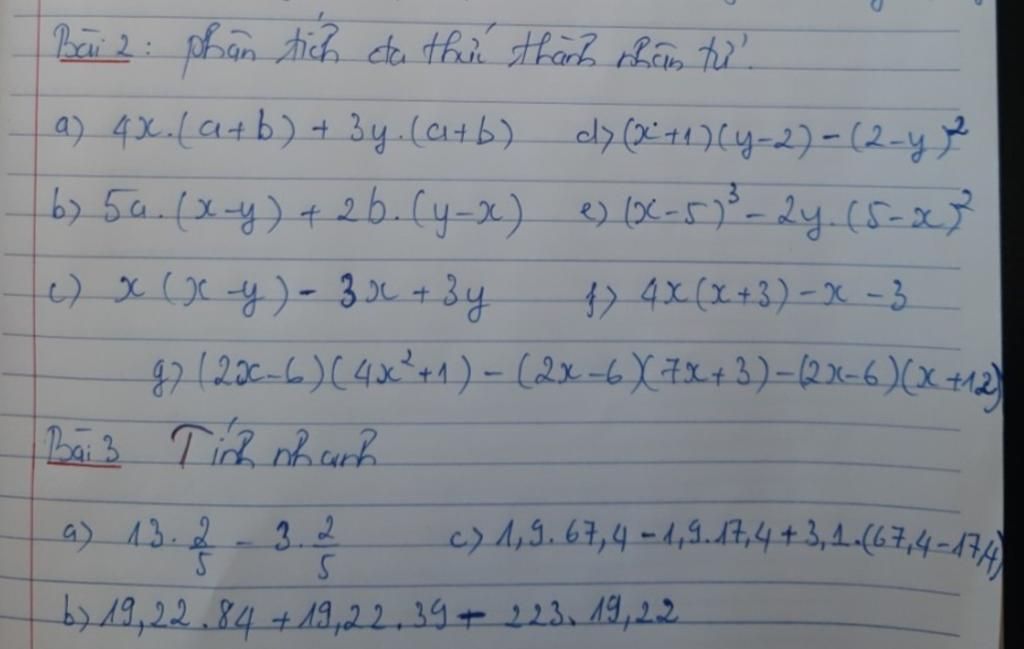 Bài 2: phân tích đa thức thành nhân tử.
a) 4x.(a+b) + 3y.(a+b) d) (x+1)(y-2) - (2-y)²
b) 5a.(x-y) + 2b.(y-x) e) (x-5)³ - 2y.(5-x)²
c) x(x-y) - 3x + 3y f) 4x(x+3) - x - 3
g) (2x-6)(4x²+1) - (2x-6)(7x+3) - (2x-6)(x+12)
Bài 3 Tính nhanh
a) 13.2/5 - 3.2/5 c) 1,9.67,4 - 1,9.17,4 + 3,1.(67,4-17,4)
b) 19,22.84 + 19,22.39 - 223.19,22